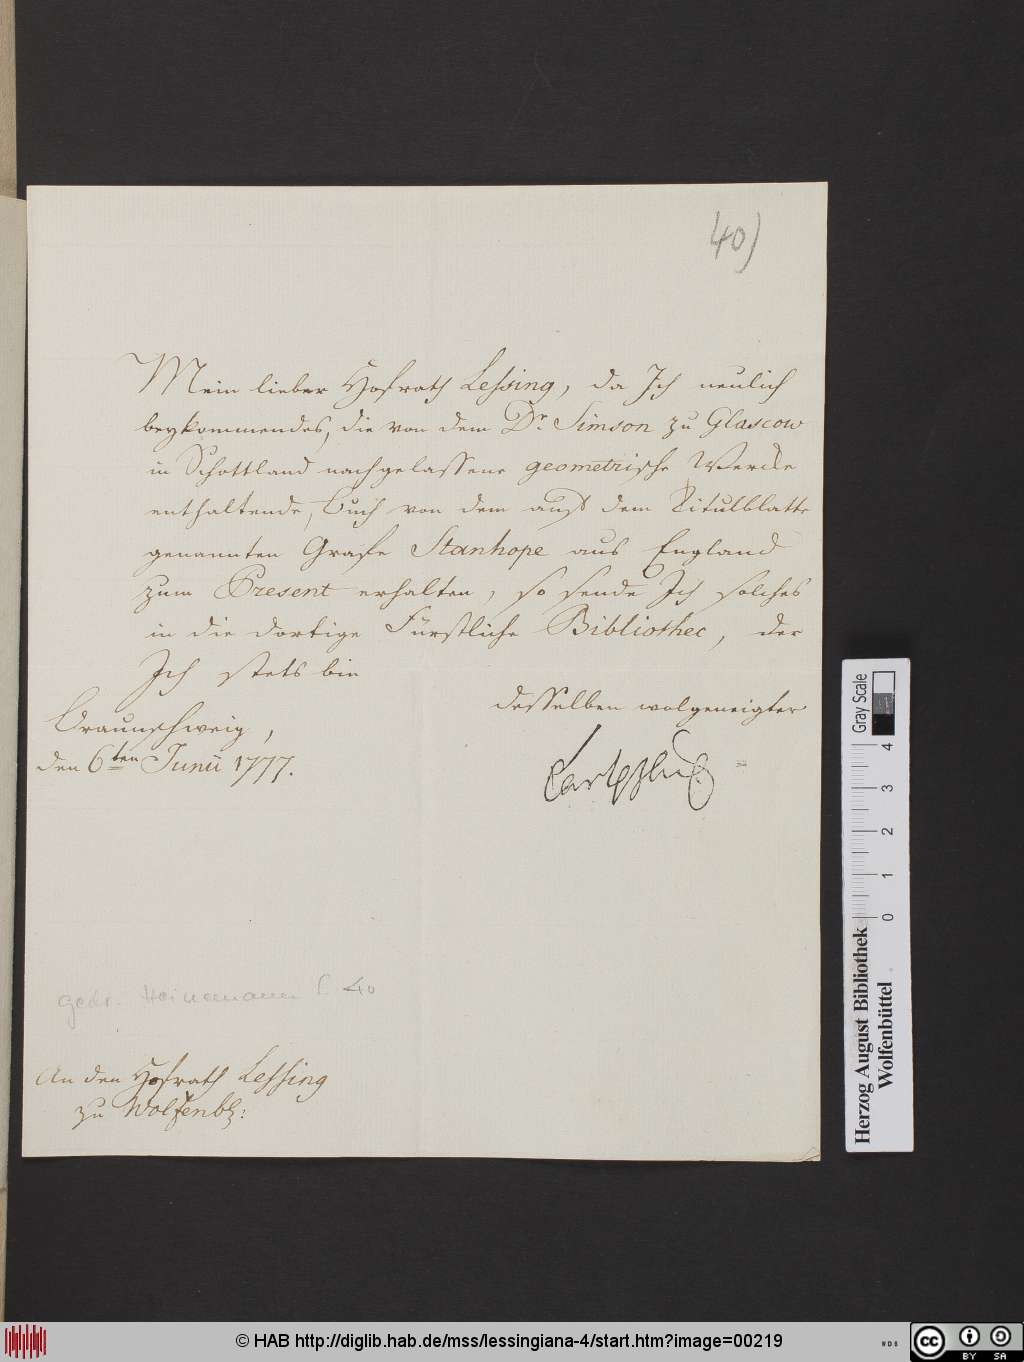 40)
Mein lieber Hofrath Lessing, da Ich neulich
beykommendes, die von dem Dr. Simson zu Glascow
in Schottland nachgelassene geometrische Wercke
enthaltende, Buch von dem auf dem Titulblatte
genannten Grafe Stanhope aus England
zum Present erhalten, so sende Ich solches
in die dortige Fürstliche Bibliothec, der
Ich stets bin
desselben wolgeneigter
Braunschweig,
den 6ten Junii 1777.
Carl HzBuL
gedr. Heinemann S. 40
An den Hofrath Lessing
zu Wolfenb:
Gray Scale
4 3 2 1 0
Herzog August Bibliothek
Wolfenbüttel
© HAB http://diglib.hab.de/mss/lessingiana-4/start.htm?image=00219
WDB
cc BY SA